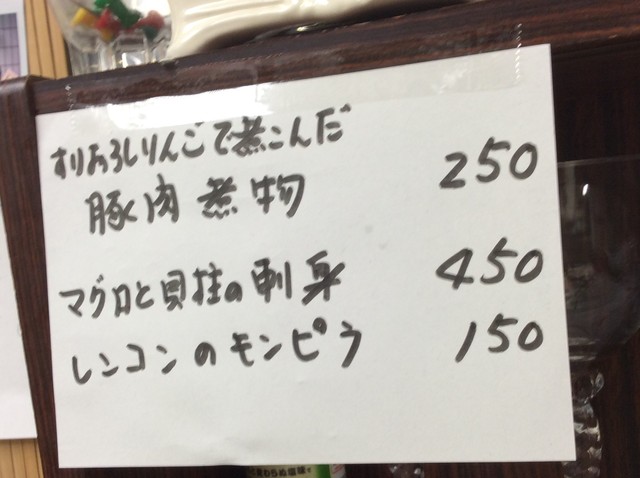 すりおろしりんごで煮こんだ
豚肉煮物 250
マグロと貝柱の刺身 450
レンコンのモンピラ 150